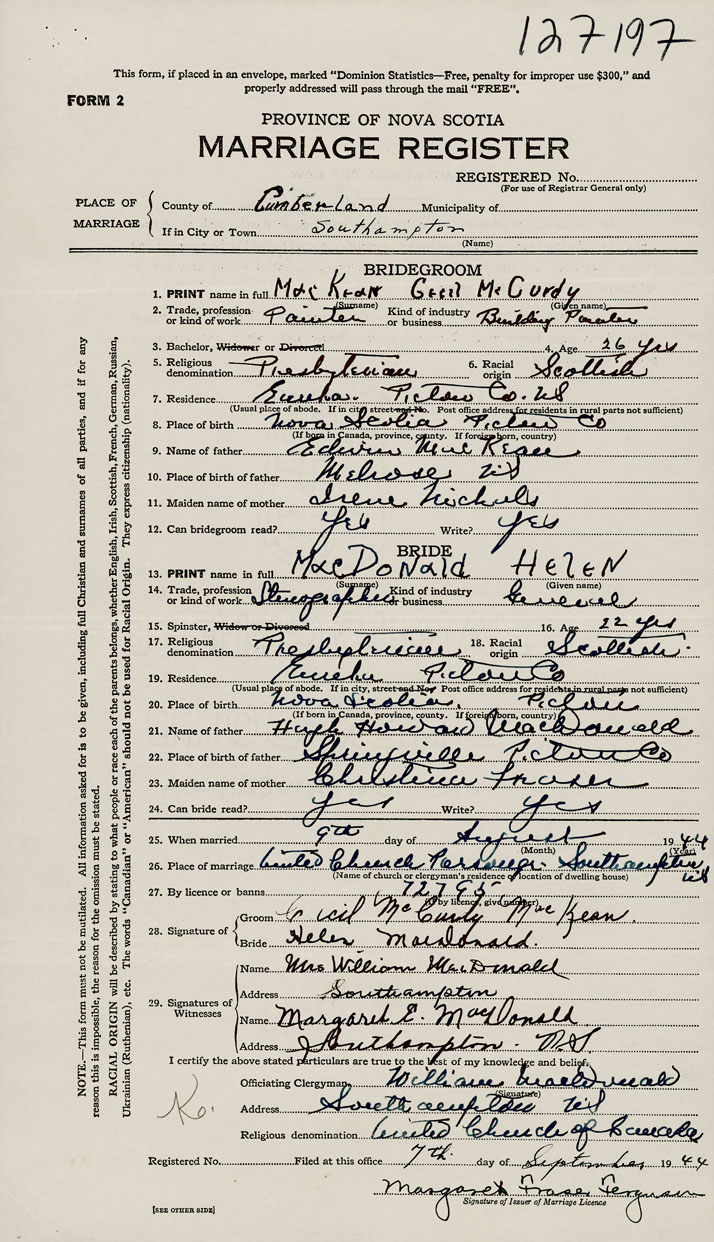 127197
This form, if placed in an envelope, marked "Dominion Statistics—Free, penalty for improper use $300," and
properly addressed will pass through the mail "FREE".
FORM 2
PROVINCE OF NOVA SCOTIA
MARRIAGE REGISTER
REGISTERED No.
(For use of Registrar General only)
PLACE OF MARRIAGE
County of Cumberland Municipality of
If in City or Town Southampton
(Name)
BRIDEGROOM
1. PRINT name in full MacKean Cecil McCurdy
(Surname) (Given name)
2. Trade, profession or kind of work Painter Kind of industry or business Building Painter
3. Bachelor, Widower or Divorced 4. Age 26 yrs
5. Religious denomination Presbyterian 6. Racial origin Scottish
7. Residence Eureka. Pictou Co. NS
(Usual place of abode. If in city, street and No. Post office address for residents in rural parts not sufficient)
8. Place of birth Nova Scotia Pictou Co
(If born in Canada, province, county. If foreign born, country)
9. Name of father Edwin MacKean
10. Place of birth of father Melrose NS
11. Maiden name of mother Irene Nichols
12. Can bridegroom read? Yes Write? Yes
BRIDE
13. PRINT name in full MacDonald Helen
(Surname) (Given name)
14. Trade, profession or kind of work Stenographer Kind of industry or business General
15. Spinster, Widow or Divorced 16. Age 22 yrs
17. Religious denomination Presbyterian 18. Racial origin Scottish.
19. Residence Eureka Pictou Co
(Usual place of abode. If in city, street and No. Post office address for residents in rural parts not sufficient)
20. Place of birth Nova Scotia. Pictou
(If born in Canada, province, county. If foreign born, country)
21. Name of father Hugh Howard MacDonald
22. Place of birth of father Springville Pictou Co
23. Maiden name of mother Christina Fraser
24. Can bride read? Yes Write? Yes
25. When married 9th day of August 1944
(Month) (Year)
26. Place of marriage United Church Parsonage. Southampton NS
(Name of church or clergyman's residence or location of dwelling house)
27. By licence or banns 72795
(If by licence, give number)
28. Signature of
Groom Cecil McCurdy MacKean.
Bride Helen MacDonald.
29. Signatures of Witnesses
Name Mrs William MacDonald
Address Southampton
Name Margaret E. MacDonald
Address Southampton. N.S.
I certify the above stated particulars are true to the best of my knowledge and belief.
Officiating Clergyman William MacDonald
(Signature)
Address Southampton NS
Religious denomination United Church of Canada
Registered No. Filed at this office 7th day of September 1944
Margaret Fraser Ferguson
Signature of Issuer of Marriage Licence
[SEE OTHER SIDE]
NOTE.—This form must not be mutilated. All information asked for is to be given, including full Christian and surnames of all parties, and if for any
reason this is impossible, the reason for the omission must be stated.
RACIAL ORIGIN will be described by stating to what people or race each of the parents belongs, whether English, Irish, Scottish, French, German, Russian,
Ukrainian (Ruthenian), etc. The words "Canadian" or "American" should not be used for Racial Origin. They express citizenship (nationality).